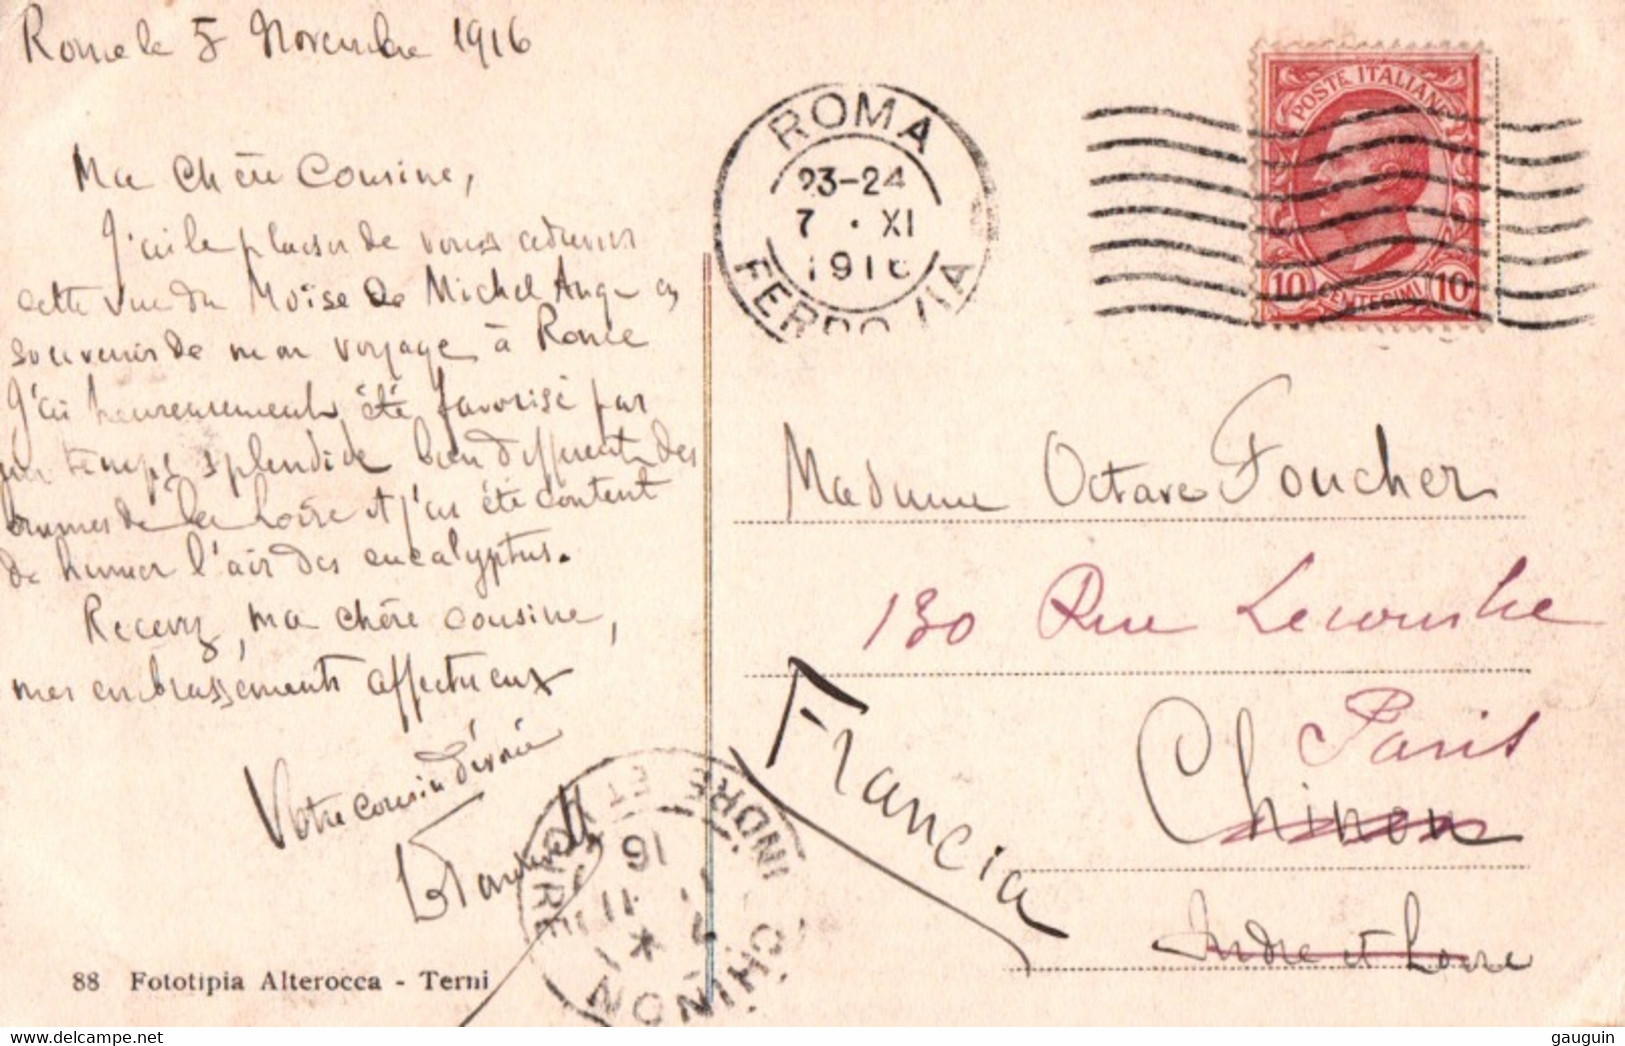 Rome le 5 Novembre 1916
Ma Chère Cousine,
J'ai le plaisir de vous adresser
cette vue du Moïse de Michel Ange en
souvenir de mon voyage à Rome
J'ai heureusement été favorisé par
un temps splendide bien différent des
brumes de la Loire et j'ai été content
de humer l'air des eucalyptus.
Recevez, ma chère cousine,
mes embrassements affectueux
Votre cousin dévoué
88 Fototipia Alterocca - Terni
ROMA
23-24
7 · XI
1916
FERROVIA
POSTE ITALIANE
10 CENTESIMI 10
Madame Octave Foucher
130 Rue Lecourbe
Paris
Chinon
Indre et Loire
Francia
CHINON
INDRE ET LOIRE
11
16
gauguin